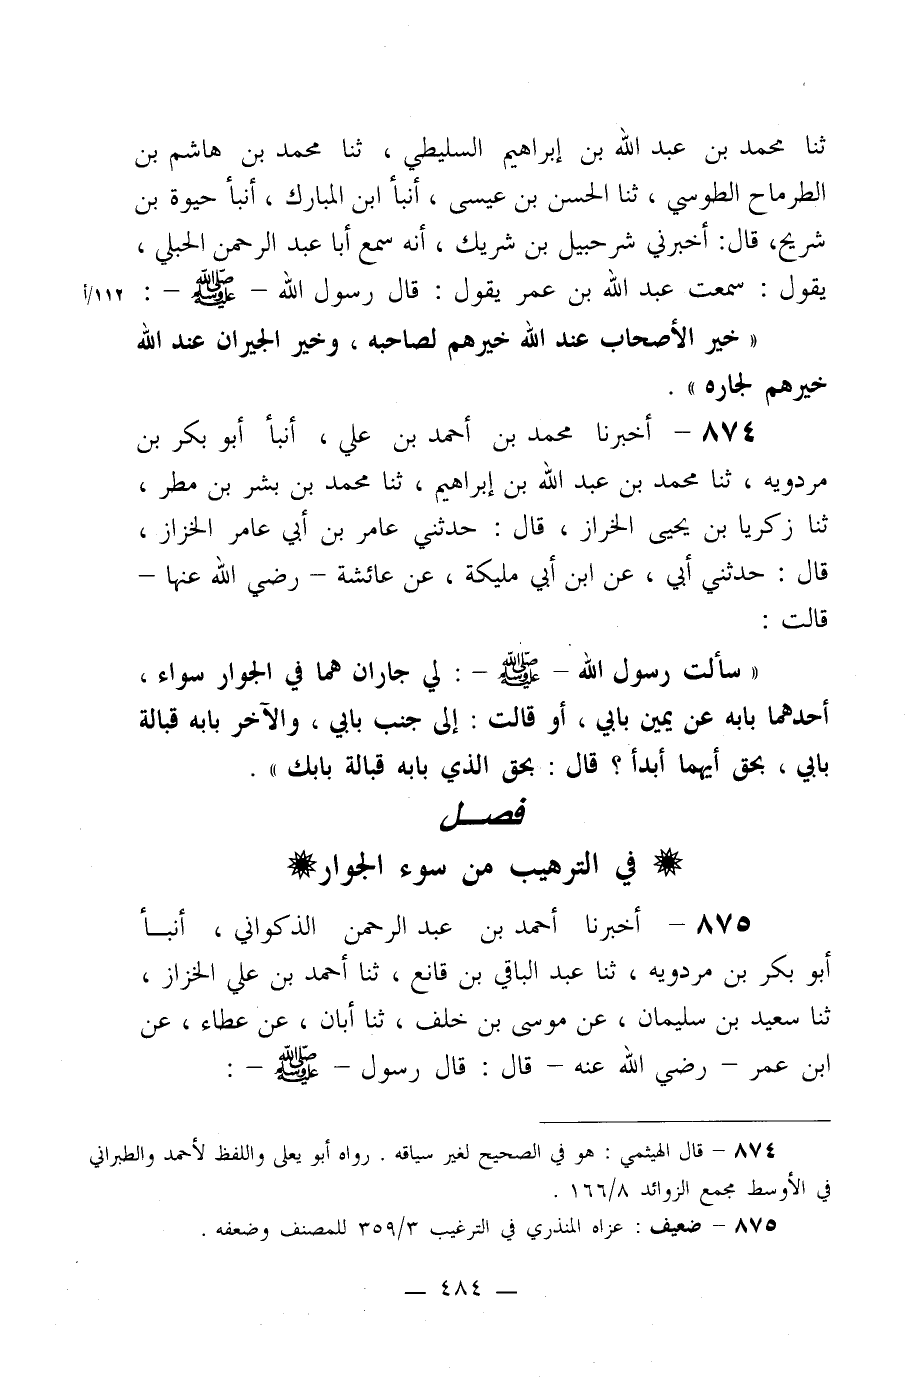 ثنا محمد بن عبد الله بن إبراهيم السليطي ، ثنا محمد بن هاشم بن
الطرماح الطوسي ، ثنا الحسن بن عيسى ، أنبأ ابن المبارك ، أنبأ حيوة بن
شريح، قال: أخبرني شرحبيل بن شريك ، أنه سمع أبا عبد الرحمن الحبلي ،
يقول : سمعت عبد الله بن عمر يقول : قال رسول الله – ﷺ – : ١١٢/أ
« خير الأصحاب عند الله خيرهم لصاحبه ، وخير الجيران عند الله
خيرهم لجاره » .
٨٧٤ – أخبرنا محمد بن أحمد بن علي ، أنبأ أبو بكر بن
مردويه ، ثنا محمد بن عبد الله بن إبراهيم ، ثنا محمد بن بشر بن مطر ،
ثنا زكريا بن يحيى الخراز ، قال : حدثني عامر بن أبي عامر الخزاز ،
قال : حدثني أبي ، عن ابن أبي مليكة ، عن عائشة – رضي الله عنها –
قالت :
« سألت رسول الله – ﷺ – : لي جاران هما في الجوار سواء ،
أحدهما بابه عن يمين بابي ، أو قالت : إلى جنب بابي ، والآخر بابه قبالة
بابي ، بحق أيهما أبدأ ؟ قال : بحق الذي بابه قبالة بابك » .
فصـــل
✷ في الترهيب من سوء الجوار ✷
٨٧٥ – أخبرنا أحمد بن عبد الرحمن الذكواني ، أنبــأ
أبو بكر بن مردويه ، ثنا عبد الباقي بن قانع ، ثنا أحمد بن علي الخزاز ،
ثنا سعيد بن سليمان ، عن موسى بن خلف ، ثنا أبان ، عن عطاء ، عن
ابن عمر – رضي الله عنه – قال : قال رسول – ﷺ – :
٨٧٤ – قال الهيثمي : هو في الصحيح لغير سياقه . رواه أبو يعلى واللفظ لأحمد والطبراني
في الأوسط مجمع الزوائد ١٦٦/٨ .
٨٧٥ – ضعيف : عزاه المنذري في الترغيب ٣٥٩/٣ للمصنف وضعفه .
— ٤٨٤ —